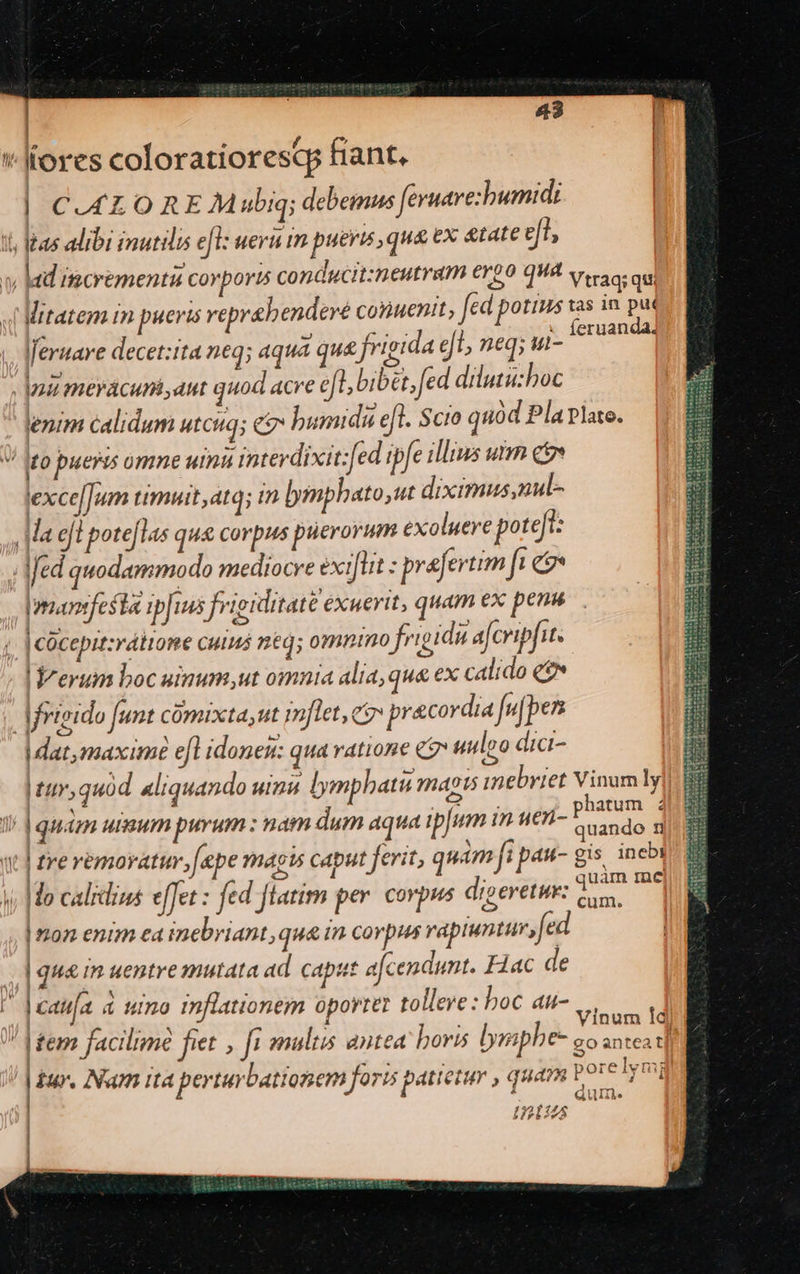 43
liores coloratioresq́; fiant.
CALOREM ubiq; debemus ſeruare: humidi
tas alibi inutilis eſt: uerū in pueris, quæ ex ætate eſt,
ad incrementū corporis conducit: neutram ergo qua
litatem in pueris repræhendere conuenit, ſed potius
ſeruare decet: ita neq; aqua quæ frigida eſt, neq; ui-
nū meracum, aut quod acre eſt, bibēt, ſed dilutū: hoc
enim calidum utcūq; & humidū eſt. Scio quòd Pla
to pueris omne uinū interdixit: ſed ipſe illius uim &
exceſſum timuit, atq; in lymphato, ut diximus, nul-
la eſt poteſtas quæ corpus puerorum exoluere poteſt:
ſed quodammodo mediocre exiſtit: præſertim ſi &
manifeſta ipſius frigiditatē exuerit, quam ex penu
cōcepit: ratione cuius neq; omnino frigidū aſcripſit.
Verum hoc uinum, ut omnia alia, quæ ex calido &
frigido ſunt cōmixta, ut inflet, & præcordia ſuſpen
dat, maximè eſt idoneū: qua ratione & uulgo dici-
tur, quòd aliquando uinū lymphatū magis inebriet
quàm uinum purum: nam dum aqua ipſum in uen-
tre remoratur, ſæpe magis caput ferit, quàm ſi pau-
lo calidius eſſet: ſed ſtatim per corpus digeretur:
non enim ea inebriant, quæ in corpus rapiuntur, ſed
quæ in uentre mutata ad caput aſcendunt. Hac de
cauſa à uino inflationem oportet tollere: hoc au-
tem facilimè fiet, ſi multis antea horis lymphe-
tur. Nam ita perturbationem foris patietur, quam
intus
Vtraq; qu
tas in pue
ſeruanda.
Plato.
Vinum ly
phatum
quando
gis inebr
quàm me
cum.
Vinum
go antea
pore lym
dum.